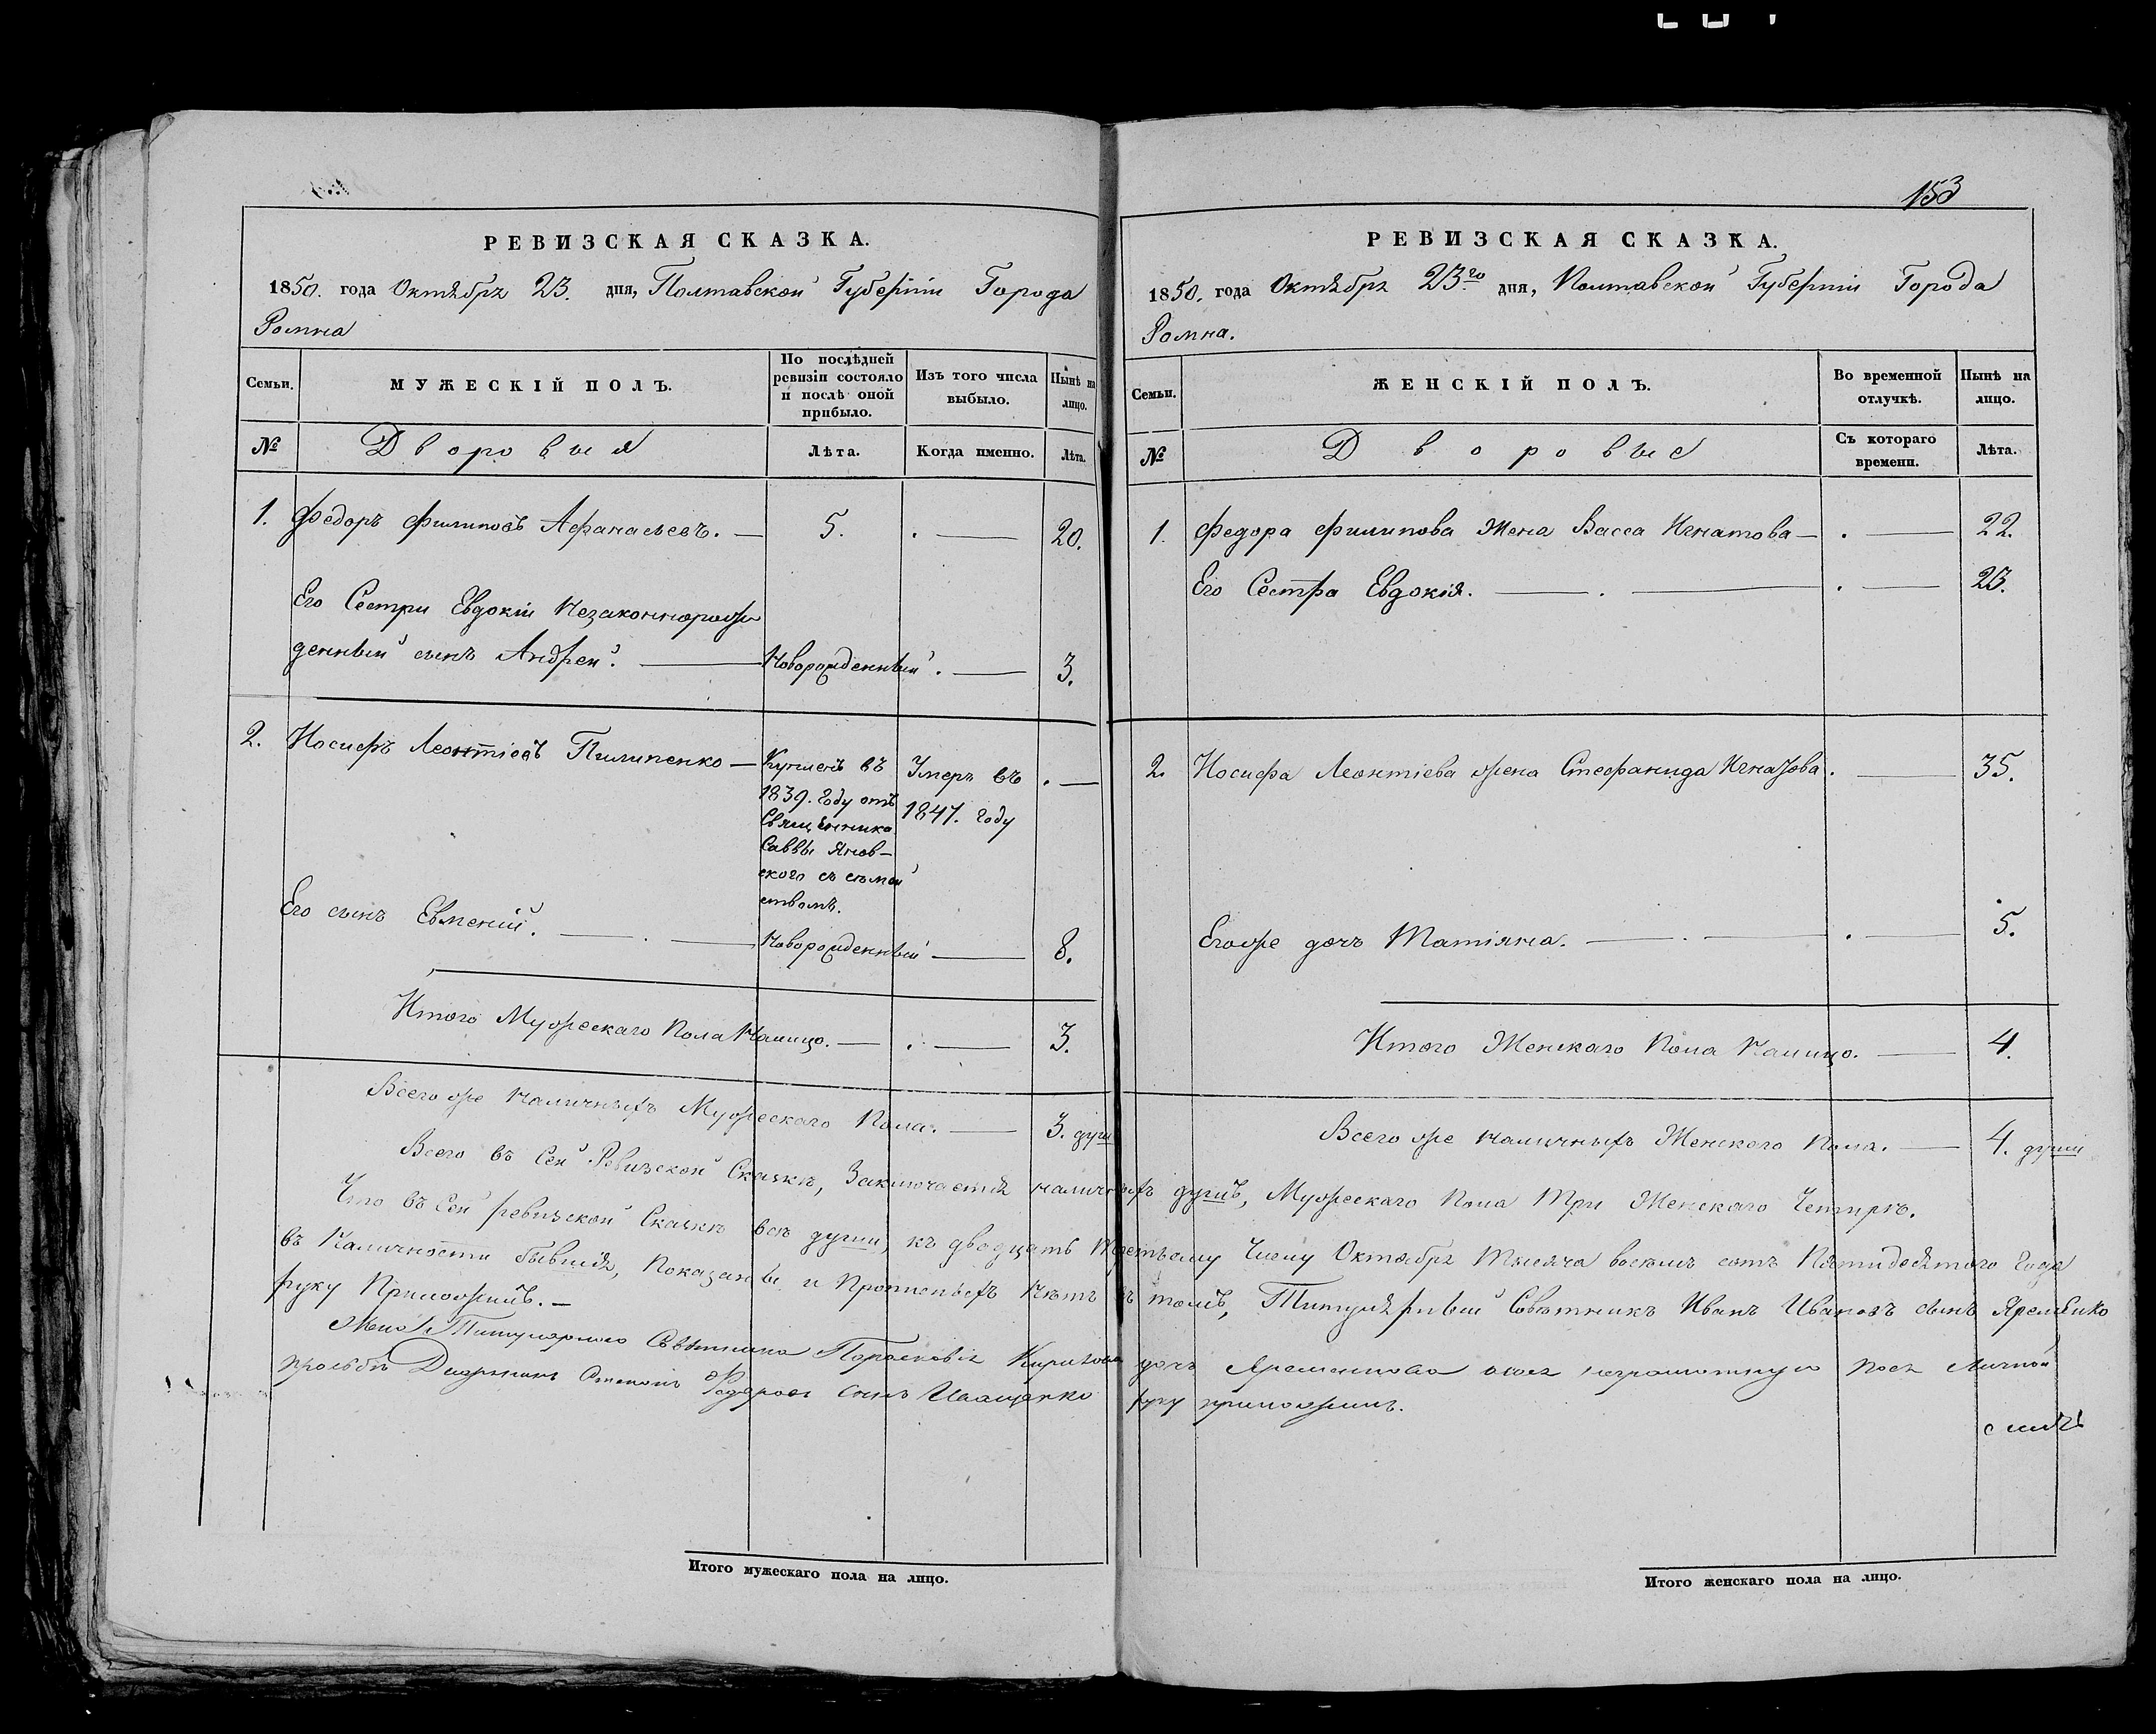 РЕВИЗСКАЯ СКАЗКА.
1850. года Октября 23. дня, Полтавской Губерніи Города
Ромна
Семьи.
МУЖЕСКІЙ ПОЛЪ.
По послѣдней ревизіи состояло и послѣ оной прибыло.
Изъ того числа выбыло.
Нынѣ на лицо.
№
Дворовыя
Лѣта.
Когда именно.
Лѣта.
1. Федоръ Филиповъ Афанасьевъ. — 5. . — 20.
Его Сестри Евдокіи Незаконнорож
денный сынъ Андрей. — Новорожденный. — 3.
2. Иосифъ Леонтіевъ Пилипенко — Купленъ въ Умеръ въ . —
1839. году отъ 1847. году
Священника
Саввы Янов-
ского съ сѣмей
ствомъ.
Его сынъ Евменій. — . — Новорожденный — 8.
Итого Мужескаго Пола Налицо. — . — 3.
Всего же Наличныхъ Мужескаго Пола. — 3. души
153
РЕВИЗСКАЯ СКАЗКА.
1850. года Октября 23го дня, Полтавской Губерніи Города
Ромна.
Семьи.
ЖЕНСКІЙ ПОЛЪ.
Во временной отлучкѣ.
Нынѣ на лицо.
№
Дворовые
Съ котораго времени.
Лѣта.
1. Федора Филипова Жена Васса Игнатова — . — 22.
Его Сестра Евдокія. — . — . — 23.
2. Иосифа Леонтіева жена Стефанида Игнатова. — 35.
Егоже дочъ Татіяна. — . — . — 5.
Итого Женскаго Пола Налицо. — 4.
Всего же Наличныхъ Женского Пола. — 4. души
Всего въ Сей Ревизской Сказкѣ, Заключается наличныхъ душъ, Мужескаго Пола Три Женскаго Четыре.
Что въ Сей ревизской Сказкѣ всѣ души, къ двадцать Третьему Числу Октября Тысяча восемъ сотъ Пятидесятого Года
въ Наличности бывшія, Показаны и Прописныхъ Нѣтъ въ томъ, Титулярный Совѣтникъ Иванъ Ивановъ сынъ Яременко
руку Приложилъ. —
Титулярного Совѣтника Парасковія дочъ Яременкова неграмотную личной
прозьбѣ Дворянинъ Степанъ Федоровъ сынъ Иващенко руку приложилъ.
Итого мужескаго пола на лицо.
Итого женскаго пола на лицо.